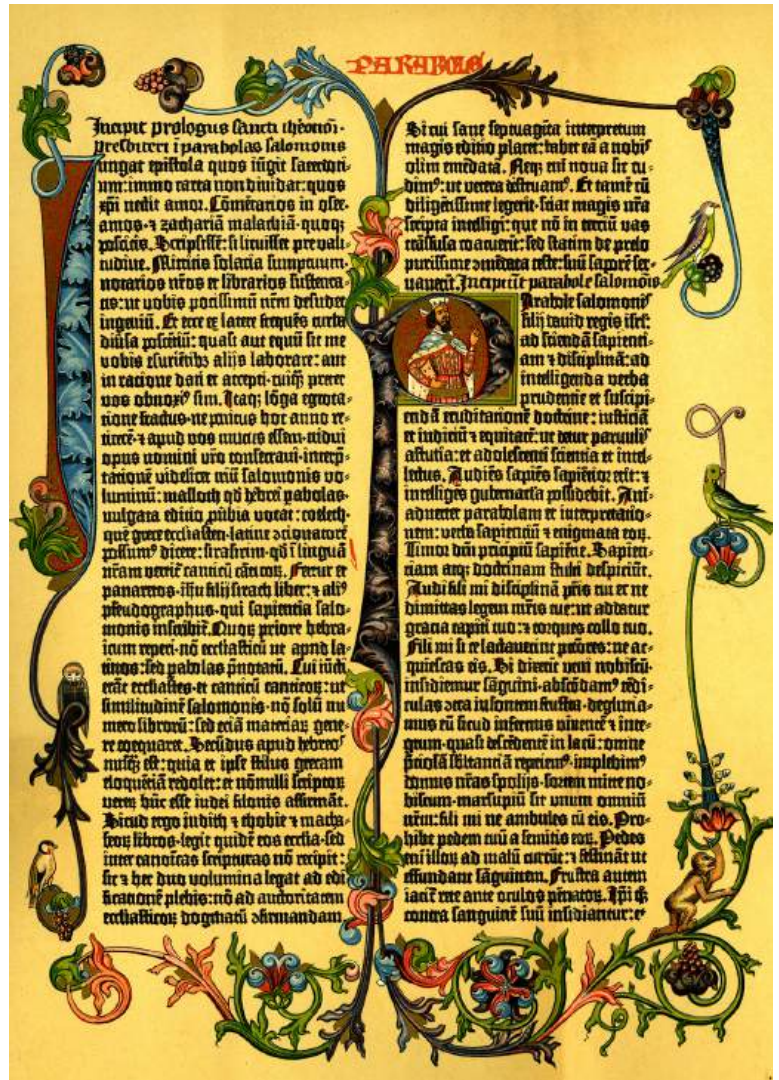 PARABOLE
Incipit prologus sancti iheronimi
presbiteri i parabolas salomonis
Iungat epistola quos iũgit sacerdoti-
um: immo carta non diuidat: quos
xp̃i nectit amor. Cõmẽtarios in osee.
amos. ⁊ zachariã malachiã. quoqȝ
poscitis. Scripsissẽ: si licuisset pre vali-
tudine. Mittitis solacia sumptuum.
notarios nr̃os et librarios sustenta-
tis: ut uobis potissimũ nr̃m desudet
ingeniũ. Et ecce ex latere frequẽs turba
diũsa poscẽtiũ: quasi aut equũ sit me
vobis esuriẽtibȝ alijs laborare: aut
in racione dati et accepti. cuiqȝ preter
vos obnoxiꝰ sim. Itaqȝ lõga egrota-
tione fractus. ne penitus hoc anno re-
ticerẽ ⁊ apud vos mutus essem. tridui
opus nomini vr̃o consecraui. interp̃-
tationẽ videlicet triũ salomonis vo-
luminũ: masloth qd̃ hebrei pabolas.
uulgata editio p̃ubia vocat: coeleth.
quẽ grece ecclesiasten. latine ↄcionatorẽ
possumꝰ dicere: sirasirim. qd̃ i linguã
nr̃am vertit̃ canticũ cãticoꝝ. Fertur et
panaretos. ih̃u filij sirach liber: ⁊ aliꝰ
pseudographus. qui sapientia salo-
monis inscribit̃. Quoꝝ priore hebra-
icum repperi. nõ ecclesiasticũ ut apud la-
tinos: sed pabolas p̃notatũ. Cui iũcti
erãt ecclesiastes. et canticũ canticoꝝ: ut
similitudinẽ salomonis. nõ solũ nu-
mero librorũ: sed eciã materiaꝝ gene-
re coequaret. Secũdus apud hebreoꝰ
nusqȝ est: quia et ipse stilus grecam
eloquẽtiã redolet: et nõnulli scriptoꝝ
veteꝝ hũc esse iudei filonis affirmãt.
Sicud ergo iudith ⁊ thobie ⁊ macha-
beoꝝ libros. legit quidẽ eos ecclesia. sed
inter canonicas scripturas nõ recipit:
sic ⁊ hec duo volumina legat ad edi-
ficationẽ plebis: nõ ad auctoritatem
ecclesiasticoꝝ dogmatũ ↄfirmandam.
Si cui sane septuagĩta interpretum
magis editio placet: habet eã a nobiꝰ
olim emẽdatã. Neqȝ eni noua sic cu-
dimꝰ: ut vetera destruamꝰ. Et tamẽ cũ
diligẽtissime legerit. sciat magis nr̃a
scripta intelligi: que nõ in terciũ vas
trãsfusa coacuerĩt: sed statim de prelo
purissime ↄmẽdata teste: suũ saporẽ ser-
uauerĩt. Incipiũt parabole salomõis
Parabole salomonis
filij dauid regis isrl̃:
ad sciendã sapienti-
am ⁊ disciplinã: ad
intelligenda verba
prudentie et suscipi-
endã eruditationẽ doctrine: iusticiã
et iudiciũ ⁊ equitatẽ: ut detur paruuliꝰ
astutia: et adolescenti scientia et intel-
lectus. Audiẽs sapiẽs sapiẽtior erit: ⁊
intelligẽs gubernacla possidebit. Ani-
aduertet parabolam et interpretatio-
nem: verba sapientiũ ⁊ enigmata eoꝝ.
Timor dñi pricipiũ sapiẽtie. Sapien-
ciam atqȝ doctrinam stulti despiciũt.
Audi fili mi disciplinã pr̃is tui et ne
dimittas legem mr̃is tue: ut addatur
gracia capiti tuo: ⁊ torques collo tuo.
Fili mi si te lactauerint pctõres: ne ac-
quiescas eis. Si dixerit veni nobiscũ
insidiemur sãguini. abscõdamꝰ tedi-
culas ↄtra insontem frustra. deglutia-
mus eũ sicud infernus viuentẽ ⁊ inte-
grum. quasi descẽdentẽ in lacũ: omnẽ
p̃ciosã sb̃stanciã reperiemꝰ. implebimꝰ
domus nr̃as spolijs. sortem mitte no-
biscum. marsupiũ sit unum omniũ
nr̃m: fili mi ne ambules cũ eis. Pro-
hibe pedem tuũ a semitis eoꝝ. Pedes
eni illoꝝ ad malũ currũt: ⁊ festinãt ut
effundant sãguinem. Frustra autem
iacit̃ rete ante oculos pẽnatoꝝ. Ipi qȝ
contra sanguinẽ suũ insidiantur: et